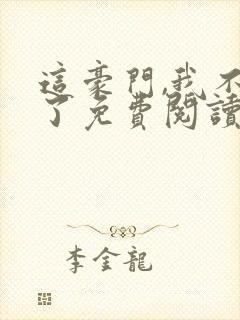 這豪門,我不
了免費閱讀
李金龍